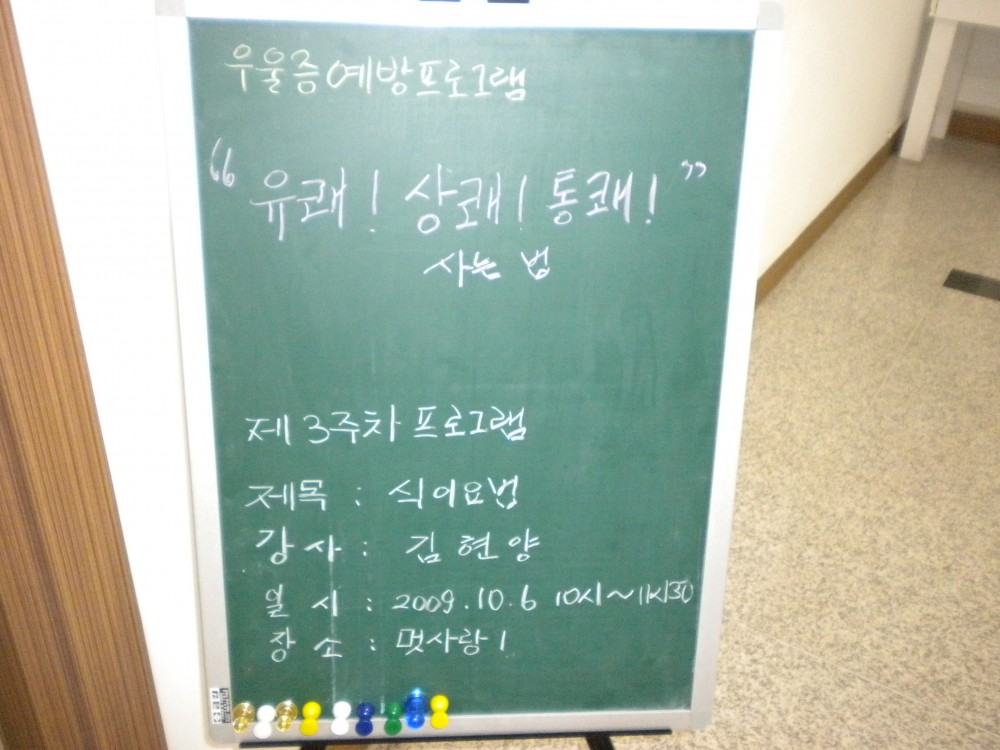 우울증예방프로그램
“유쾌! 상쾌! 통쾌!”
사는 법
제 3주차 프로그램
제목 : 식이요법
강사 : 김현양
일시 : 2009.10.6 10시~11시30
장소 : 멋사랑 1